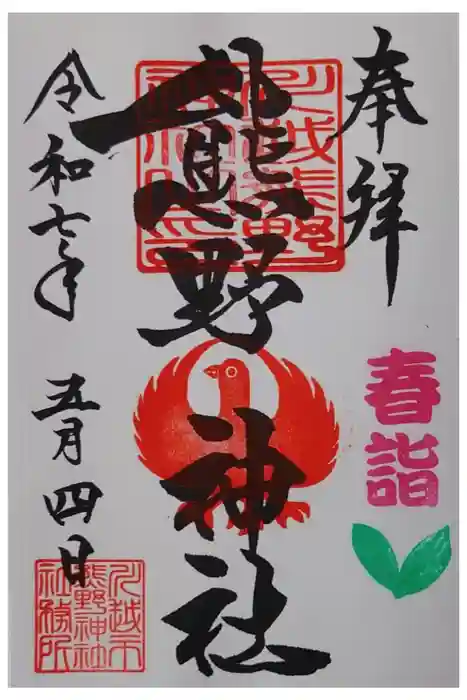 奉拝
春詣
川越熊野神社之印
熊野神社
令和七年 五月四日
川越市
熊野神社
社務所